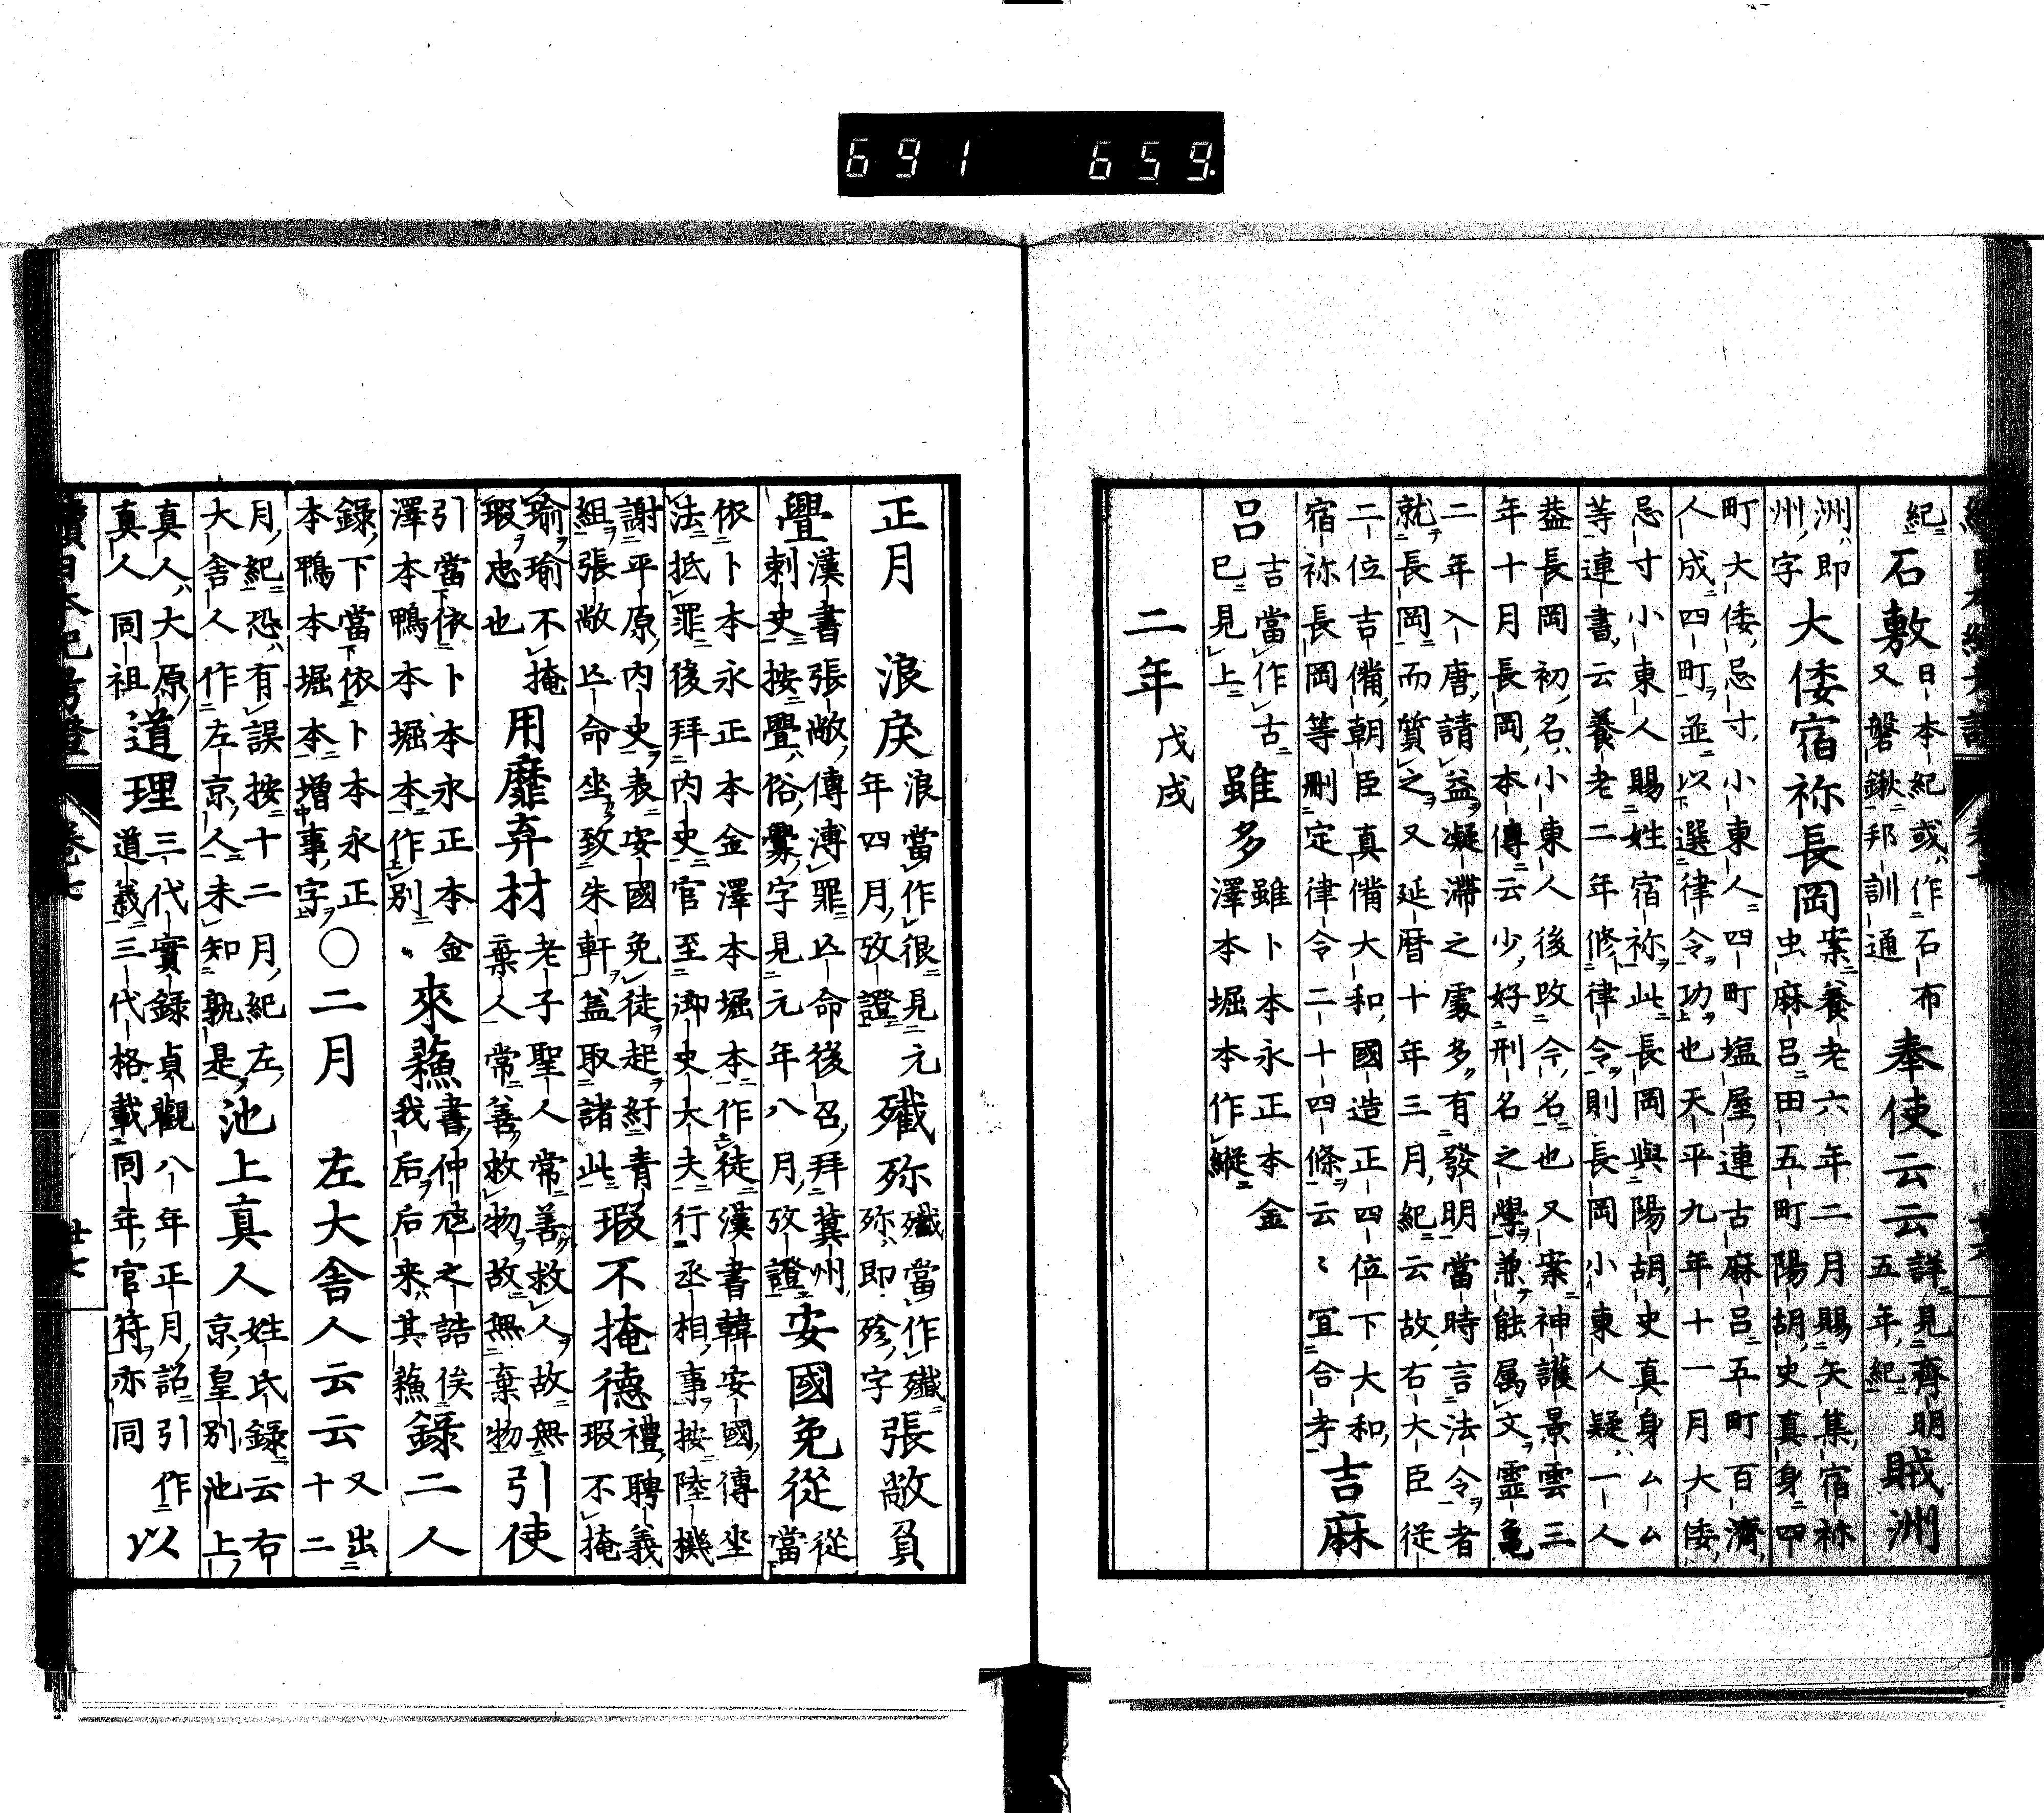 691 659.
紀石敷日本紀或作石布又磐鍬邦訓通奉使云云詳見齊明五年紀賊洲
洲即州字大倭宿祢長岡案養老六年二月賜矢集宿祢虫麻呂田五町陽胡史真身四
町大倭忌寸小東人四町塩屋連古麻呂五町百濟人成四町並以選律令功也天平九年十一月大倭
忌寸小東人賜姓宿祢此長岡與陽胡史真身ムム等連書云養老二年修律令則長岡小東人疑一人
益長岡初名小東人後改今名也又案神護景雲三年十月長岡本傳云少好刑名之學兼能属文霊亀
二年入唐請益凝滞之處多有發明當時言法令者就長岡而質之又延暦十年三月紀云故右大臣従
二位吉備朝臣真備大和國造正四位下大和宿祢長岡等刪定律令二十四條云〻宜合考吉麻
呂吉當作古已見上雖多雖卜本永正本金澤本堀本作縱
二年戊戌
正月　浪戾浪當作很見元年四月攷證殲殄殲當作殲殄即殄字張敞負
舋漢書張敞傳溥罪亡命後召拜冀州刺史按舋俗釁字見元年八月攷證安國免從從當
依卜本永正本金澤本堀本作徒漢書韓安國傳坐法抵罪後拜内史官至御史大夫行丞相事按陸機
謝平原内史表安國免徒起紆青組張敞亡命坐致朱軒盖取諸此瑕不掩德禮聘義瑕不掩
瑜瑜不掩瑕忠也用靡弃材老子聖人常善救人故無棄人常善救物故無棄物引使
引當依卜本永正本金澤本鴨本堀本作別來蘓書仲虺之誥俟我后后来其蘓錄二人
錄下當依卜本永正本鴨本堀本增事字〇二月　左大舍人云云又出十二
月紀恐有誤按十二月紀左大舍人作左京人未知孰是池上真人姓氏錄云右京皇別池上
真人大原真人同祖道理三代實錄貞觀八年正月詔引作道義三代格載同年官符亦同以
續日本紀考證　卷七　廿七